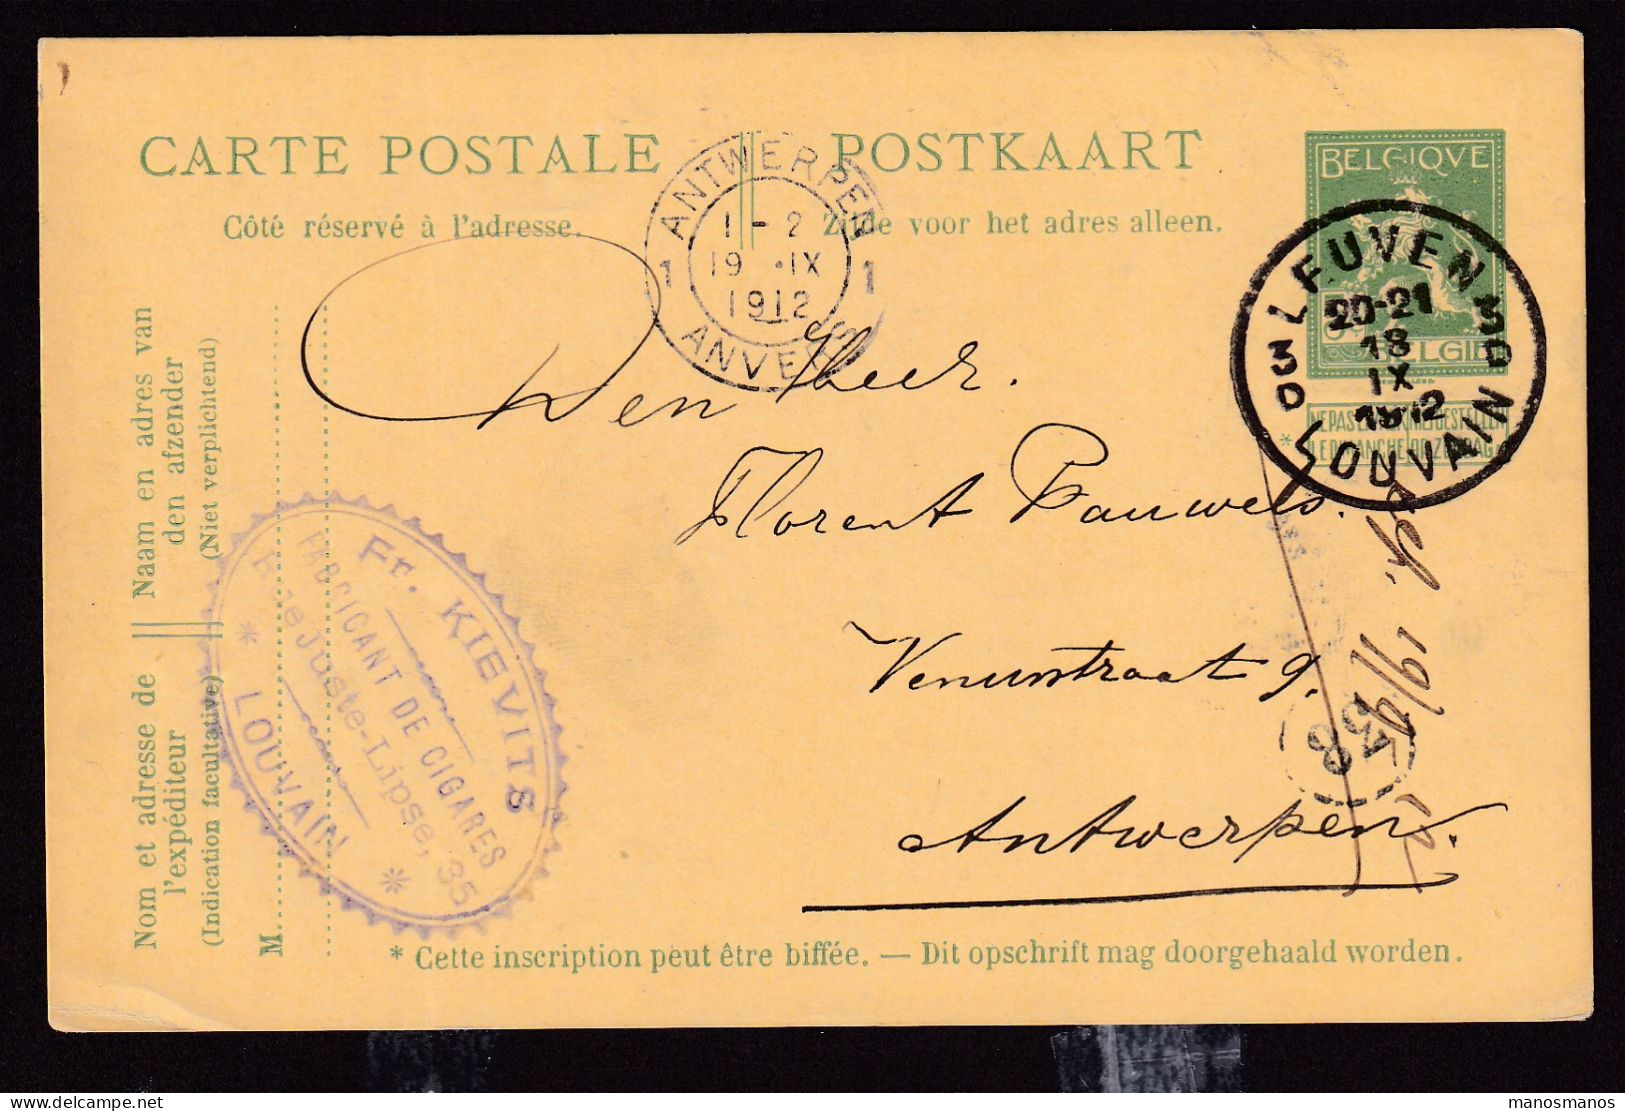 CARTE POSTALE
POSTKAART
Côté réservé à l'adresse.
Zijde voor het adres alleen.
BELGIQVE
ANTWERPEN
1 - 2
19 IX
1912
1 1
ANVERS
LEUVEN
20-21
18
IX
1912
3D 3D
LOUVAIN
Den Heer.
Florent Pauwels.
Venusstraat 9.
Antwerpen.
19/9
58
Naam en adres van
den afzender
(Niet verplichtend)
Nom et adresse de
l'expéditeur
(Indication facultative)
M
Fr. KIEVITS
FABRICANT DE CIGARES
Rue Juste-Lipse, 35
* LOUVAIN *
* Cette inscription peut être biffée. — Dit opschrift mag doorgehaald worden.
manosmanos